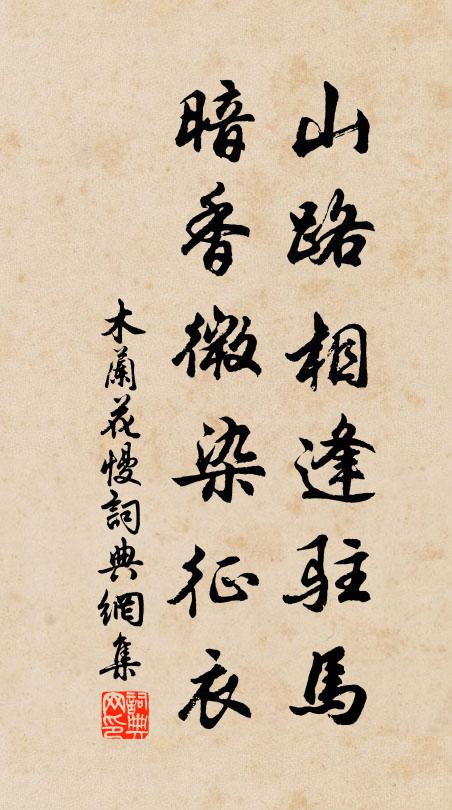 山路相逢駐馬
暗香微染征衣
木蘭花慢詞典網集
詞典网印